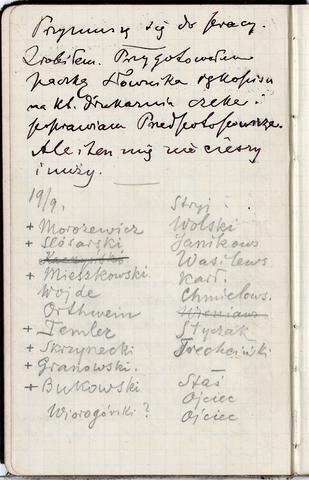 Przymuszę się do pracy.
Zrobiłem. Przygotowałem
paczkę Słownika rękopisu
na kt. drukarnia czeka i
poprawiam
Ale i ten mię nie cieszy
i nuży.
19/9.
+ Morozewicz
+ Ślósarski
+ Mieszkowski.
Wojde
Orthwein
+ Temler
+ Skrzynecki
+ Granowski.
+ Bukowski
Wiorogórski?
Stryj
Wolski
Janikows
Wasilews
Karł.
Chmielows.
Styczak
Trechciński
Staś
Ojciec
Ojciec